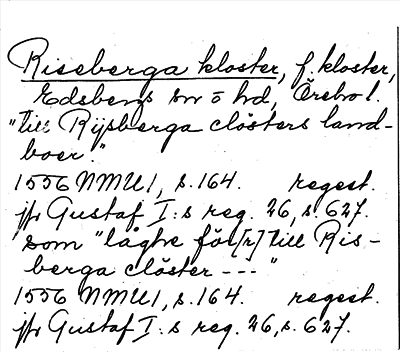 Riseberga kloster, f. kloster,
Edsbergs sn o hd, Örebro l.
"till Rijsberga clösters land-
boer."
1556 NMU 1, s. 164. regest.
jfr Gustaf I:s reg. 26, s. 627.
som "låghe för[r] till Ris-
berga clöster ---"
1556 NMU 1, s. 164. regest.
jfr Gustaf I:s reg. 26, s. 627.